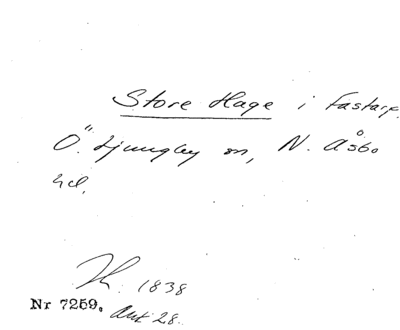 Store Hage i Fastarp.
Ö. Ljungby sn, N. Åsbo
hd.
Th. 1838
Nr 7259. Akt 28.